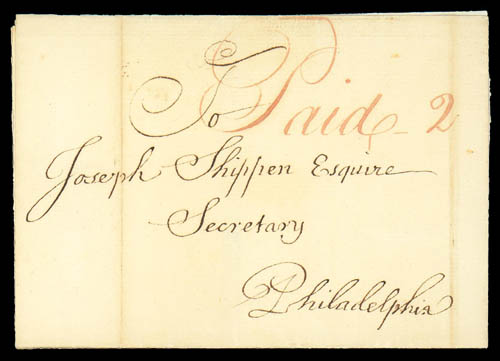 To Paid 2
Joseph Shippen Esquire
Secretary
Philadelphia